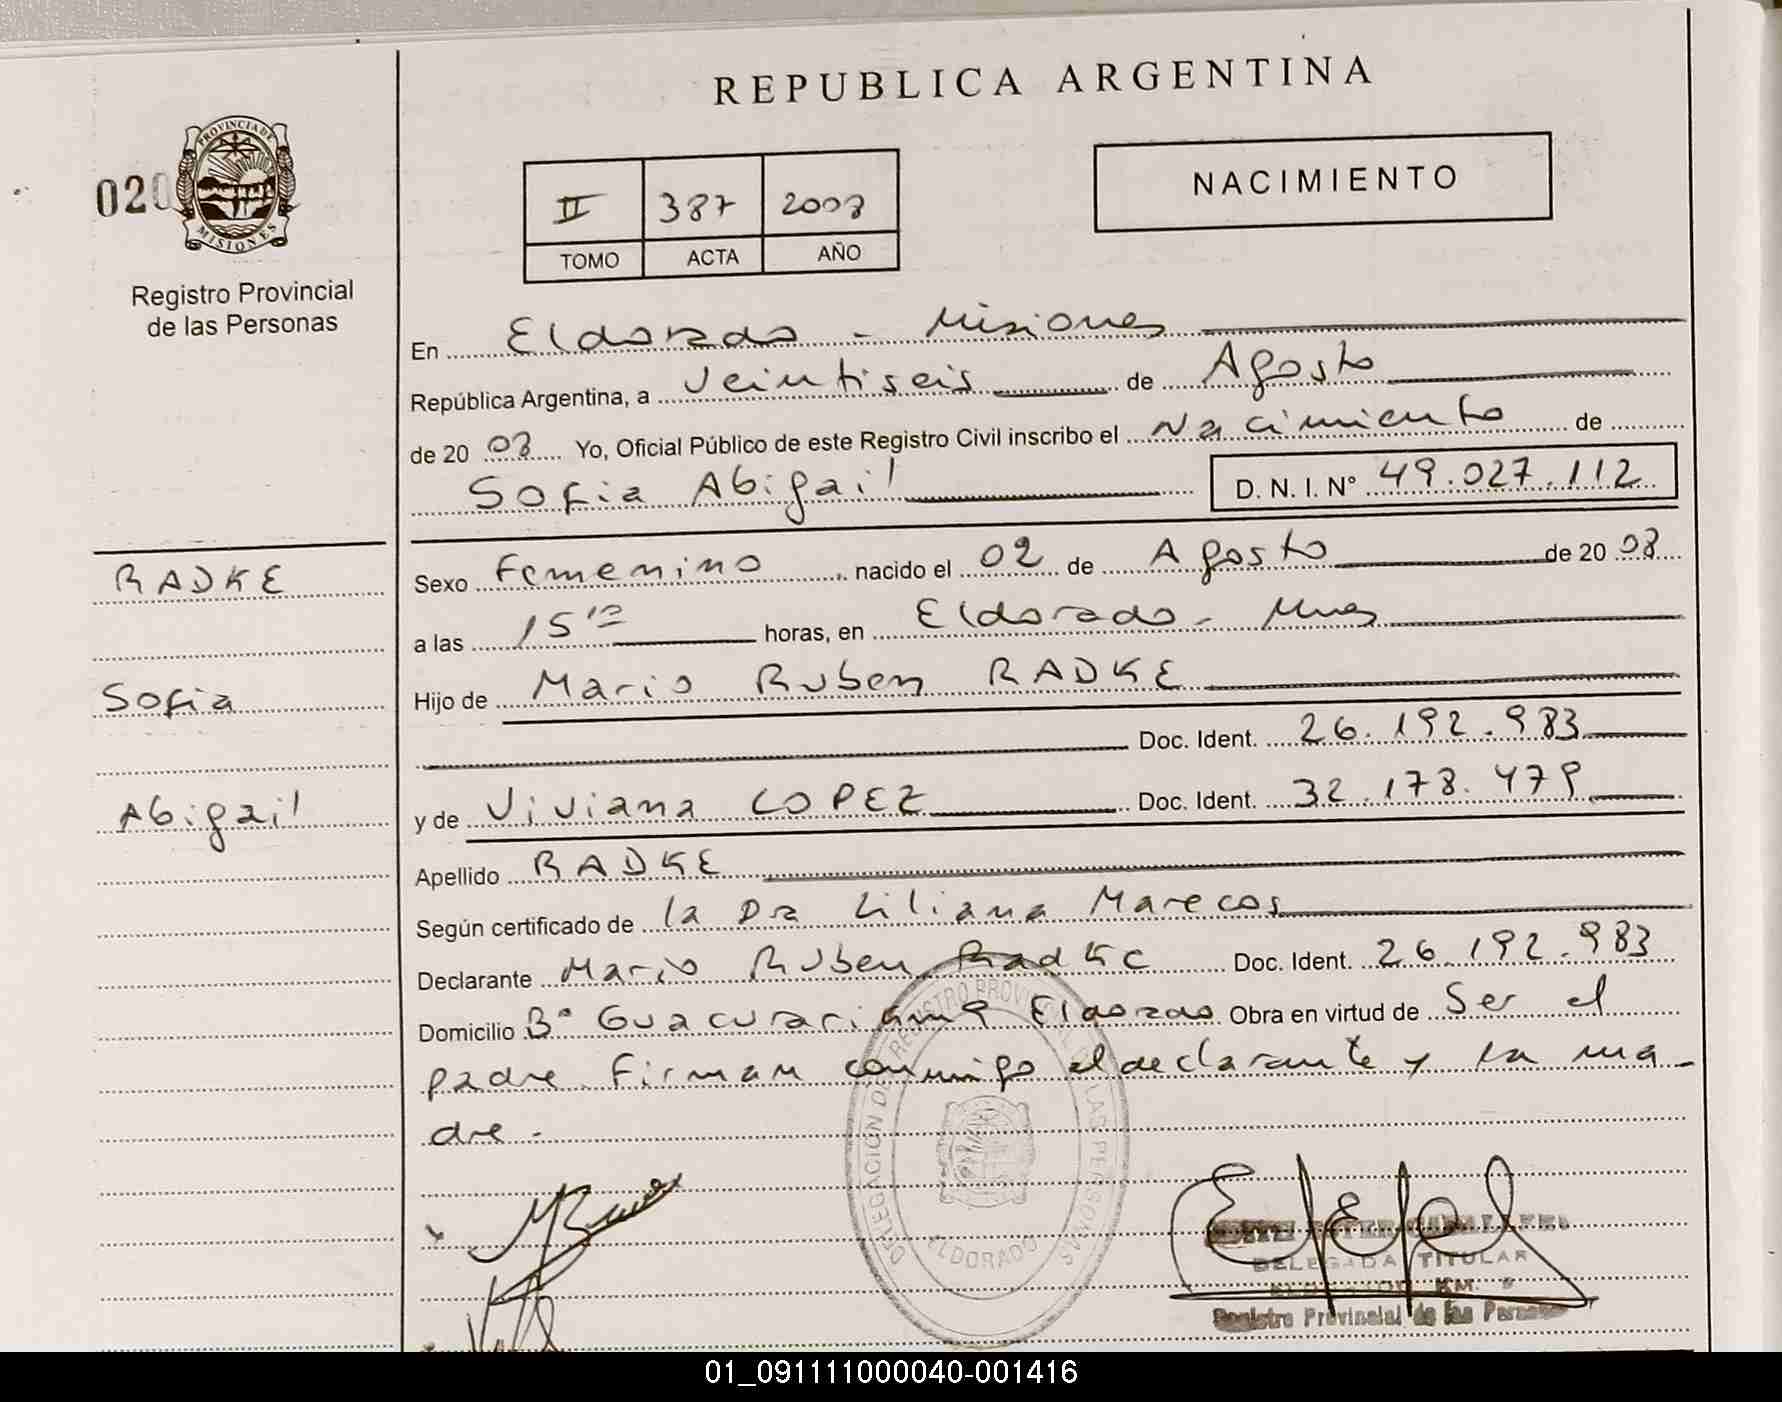 REPUBLICA ARGENTINA
020
PROVINCIA DE
MISIONES
Registro Provincial
de las Personas
II 387 2008
TOMO ACTA AÑO
NACIMIENTO
En Eldorado - Misiones
República Argentina, a Veintiseis de Agosto
de 20 08 Yo, Oficial Público de este Registro Civil inscribo el Nacimiento de
Sofia Abigail D. N. I. N° 49.027.112
RADKE
Sofia
Abigail
Sexo Femenino nacido el 02 de Agosto de 20 08
a las 15 horas, en Eldorado - Mnes
Hijo de Mario Ruben RADKE
Doc. Ident. 26.192.983
y de Viviana LOPEZ Doc. Ident. 32.178.479
Apellido RADKE
Según certificado de la Dra Liliana Marecos
Declarante Mario Ruben Radke Doc. Ident. 26.192.983
Domicilio B° Guacurari Eldorado Obra en virtud de Ser el
padre. Firman conmigo el declarante y la ma-
dre -
DELEGACION DE REGISTRO PROVINCIAL DE LAS PERSONAS
ELDORADO
DELEGADA TITULAR
KM. 9
Registro Provincial de las Personas
01_091111000040-001416